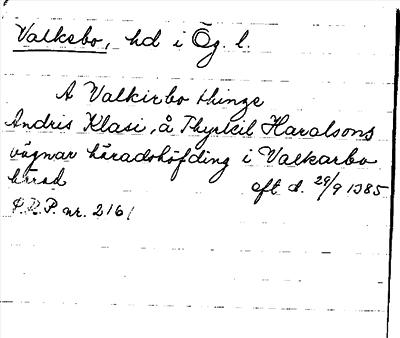 Valkebo, hd i Ög. l.
A Valkirbo thinge
Andris Klasi, å Thyrkil Haralsons
vägnar häradshöfding i Valkarbo
härad eft. d. 29/9 1385
P.R.P. nr. 2161